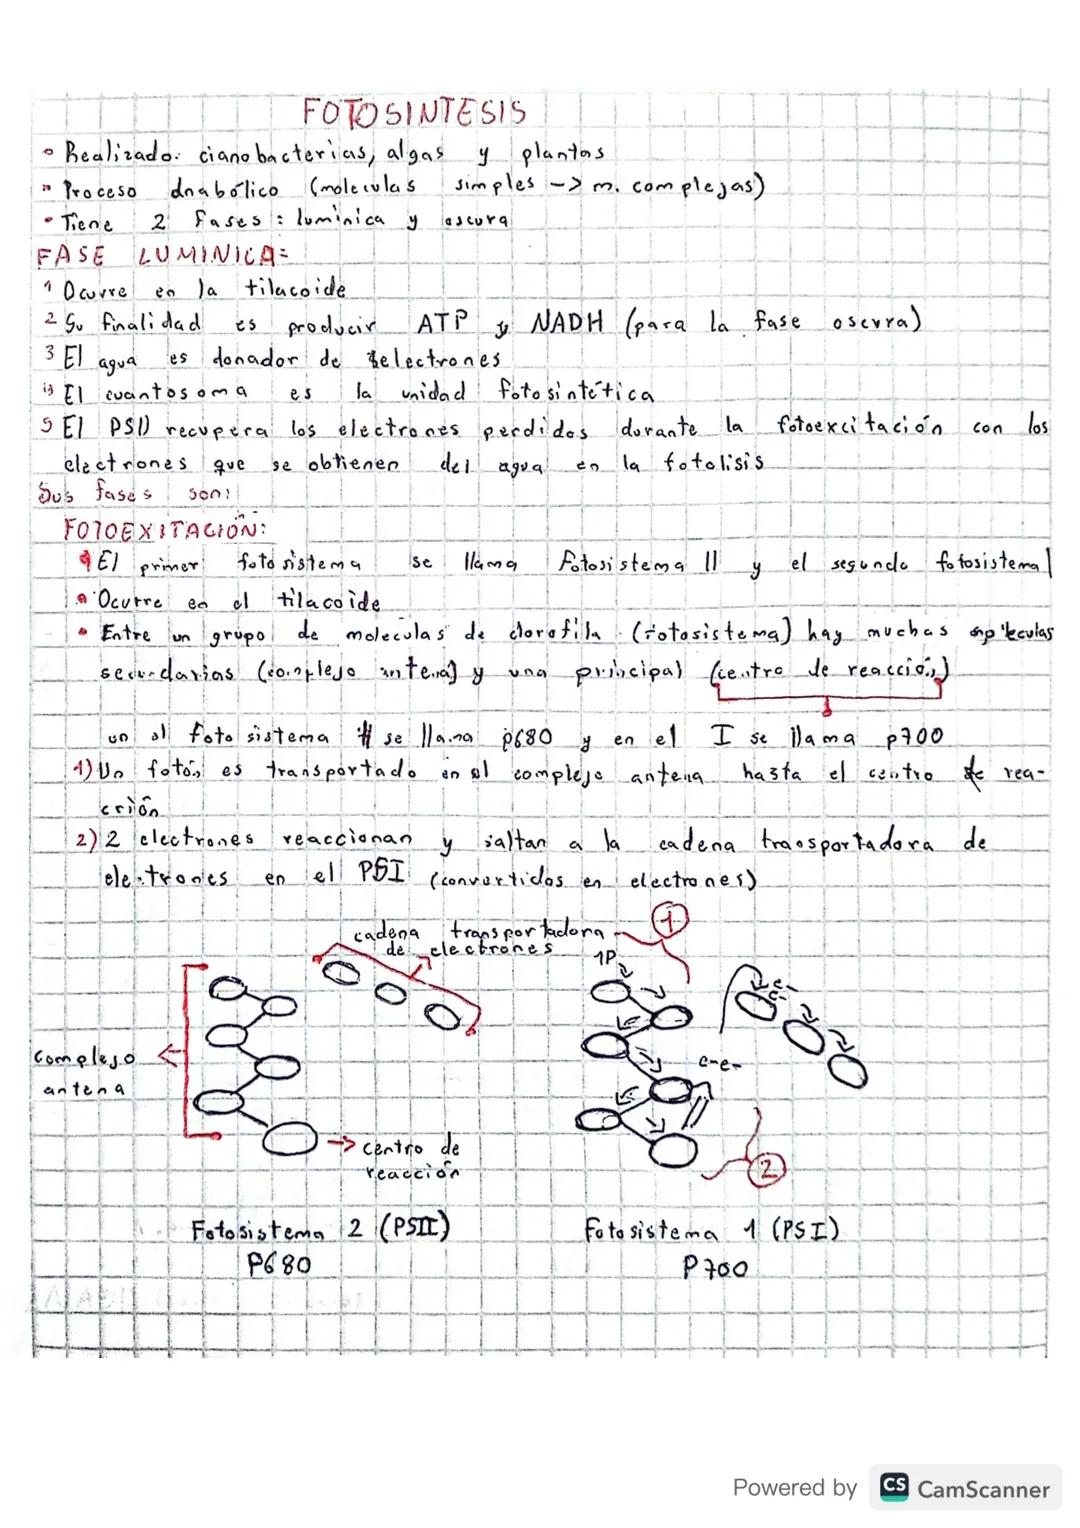 FOTOSINTESIS
• Realizado: cianobacterias, algas y plantas
• Proceso anabólico (moleculas simples -> m. complejas)
• Tiene 2 fases: luminica y oscura
FASE LUMINICA:
1 Ocurre en la tilacoide
2 Su finalidad es producir ATP y NADH (para la fase oscura)
3 El agua es donador de electrones
El cuantosoma es la unidad fotosintética
5 El PSII recupera los electrones perdidos durante la fotoexcitación con los
electrones que se obtienen del agua en la fotolisis
Sus fases son:
FOTOEXITACIÓN:
• El primer fotosistema se llama fotosistema II y el segundo fotosistema I
• Ocurre en el tilacoide
• Entre un grupo de moleculas de clorofila (fotosistema) hay muchas moleculas
secundarias (complejo antena) y una principal (centro de reacción)
en el fotosistema II se llama p680 y en el I se llama p700
1) Un fotón es transportado en el complejo antena hasta el centro de rea-
cción
2) 2 electrones reaccionan y saltan a la cadena transportadora de
electrones en el PSI (convertidos en electrones)
1
cadena transportadora
de electrones
1P
e-
e-
complejo
antena
e-e-
-> centro de
reacción
2
Fotosistema 2 (PSII)
P680
Fotosistema 1 (PSI)
P700
Powered by CS CamScanner